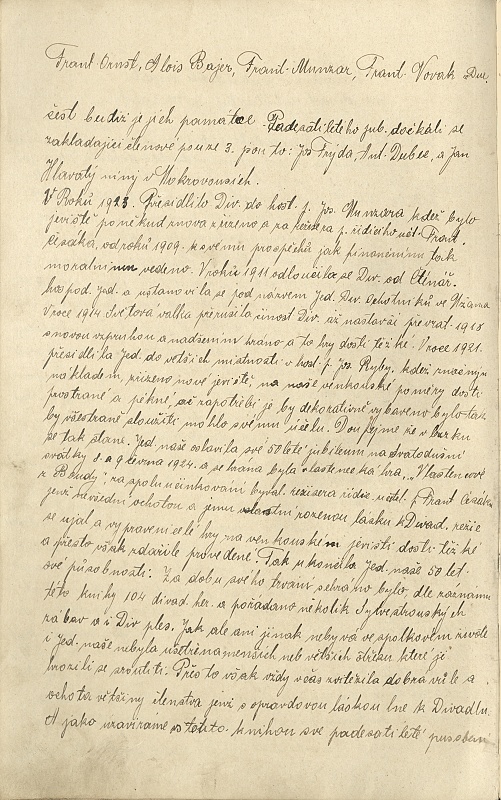 Frant. Ornst, Alois Bajer, Frant. Munzar, Frant. Novak Du.
čest budiž je jich památce. Padesátiletého jub. dočkáli se
zakládající členové pouze 3. pou to: Jos. Frýda, Ant. Dubec, a Jan
Hlavatý nyní v Mokrovousích.
V Roků 1923. Přesídlilo Div. do host. p. Jos. Munzara kdež bylo
jeviště poněkud znova zřízeno a za režisera p. řídicího uč. Frant.
Císařka, od roků 1909. k svému prospěchů jak finančním tak
morálnímu vedeno. V roků 1911 odloučila se Div. od Čtenář.
hospod. Jed. a ustanovila se pod názvem Jed. Div. Ochotníků ve
V roce 1914 Světová válka přerušila činost Div. až nastavší převrat 1918
snovou vzpruhou a nadšením hráno a to hry dosti těžké. V roce 1921.
přesídlila Jed. do větších místností v host. p. Jos. Ryby, kdež značným
nákladem, zřízeno nové jeviště, na naše venkovské poměry dosti
prostrané a pěkné, ač zapotřebí je by dekorativně vybaveno bylo tak
by všestraně sloužiti mohlo svému účelu. Doufejme že v brzku
se tak stane. Jed. naše oslavila své 50 leté jubileum na Svatodušní
svátky 8. a 9 června 1924. a sehrána byla vlastenecká hra, "Vlastencové
z Boudy", za spolu účinkování býval. režisera řídic. učitel. p. Frant. Císařka
jenž návšední ochotou a jemu vlastní rozenou lásku k Divad. režie
se ujal a vypravení celé hry na venkovském jevišti dosti těžké
a přesto však zdařile provedené. Tak ukončila Jed. naše 50 let.
své působnosti. Za dobu svého trvání sehráno bylo, dle záznamů
této knihy 104 divad. her. a pořádáno několik Sylvestrovských
zábav a i Div ples. Jak ale ani jinak nebývá ve spolkovém živote
i Jed. naše nebyla ušetřena menších neb větších otřesů které jí
hrozili se zroutiti. Přes to však vždy včas zvítězila dobrá vůle a
ochota většiny členstva jenž s opravdovou láskou lne k Divadlu.
A jako uzavíráme s touto knihou své padesátileté působení